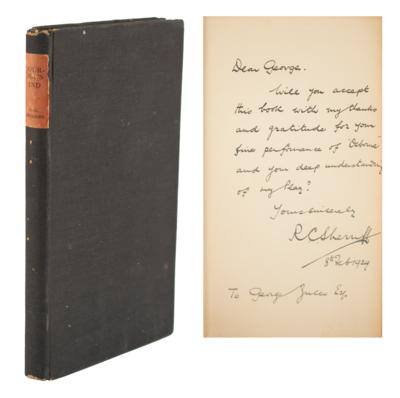 JOUR-
NEY'S
END
R.C.
SHERRIFF
Dear George.
Will you accept
this book with my thanks
and gratitude for your
fine performance of 'Osborne'
and your deep understanding
of my play?
Yours sincerely
R C Sherriff
8th Feb 1929
To George Zucco Esq.